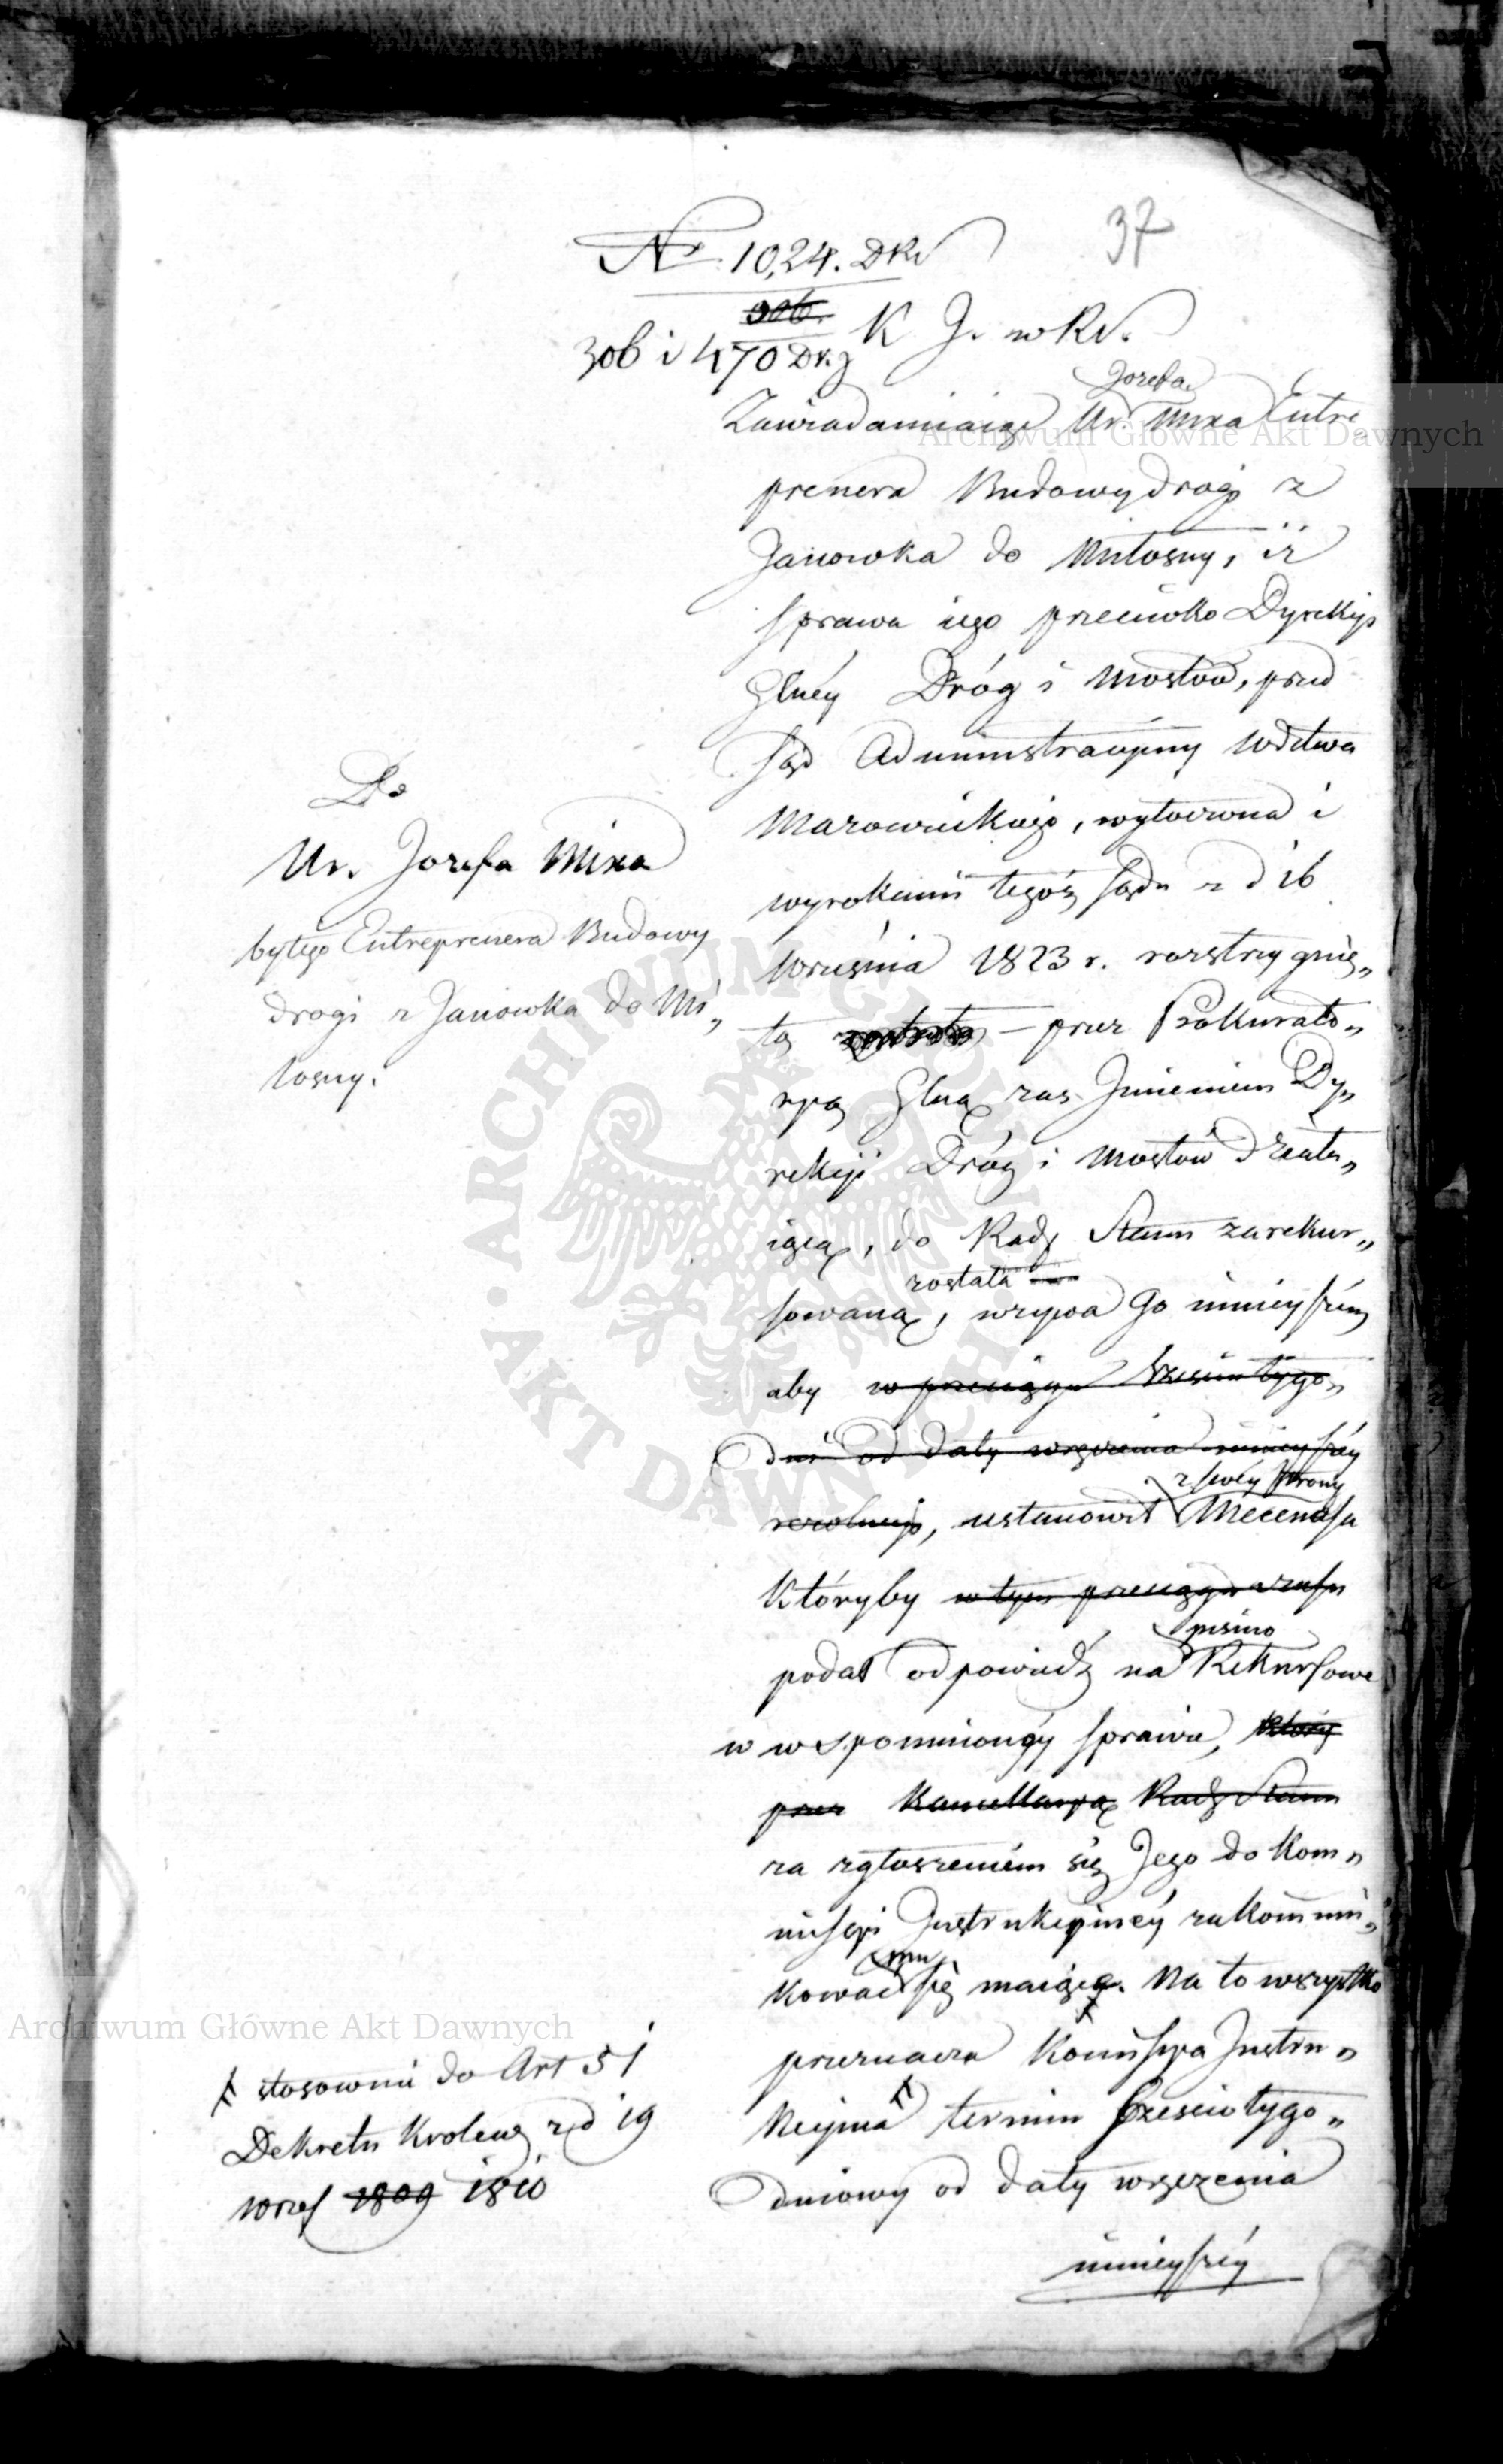 37
No 1024. DKs
306.
306 i 470 Dr.g K J. w Rs.
Józefa
Zawiadamiaiąc Ur. Mixa Entre
prenera Budowy drogi z
Janowka do Miłosny, iż
sprawa iego przeciwko Dyrekcyi
Głney Dróg i Mostów, przed
Sąd Administracyiny Wdztwa
Mazowieckiego, wytoczona i
wyrokiem tegoż Sądu z d 16
Września 1823 r. rozstrzygnię„
ta została – przez Prokurato„
ryą Głną zas Imieniem Dy„
rekcyi Dróg i Mostów działa„
iącą, do Rady Stanu zarekur„
została
sowaną, wzywa Go ninieyszem
aby w przeciągu sześciu tygo„
dni od daty wręczenia ninieyszéy
z swéy strony
rezolucyi, ustanowił Mecenasa
któryby w tym przeciągu czasu
pismo
podał odpowiedź na Rekursowe
w wspomnionéy sprawie, który
przez Kancellaryą Rady Stanu
za zgłoszeniem się Jego do Kom„
missyi Instrukcyinéy zakommuni„
mu
kować się maiące. Na to wszystko
przeznacza Kommissya Instru„
kcyina ⊦ termin sześciotygo„
dniowy od daty wręczenia
ninieyszéy
Do
Ur. Jozefa Mixa
byłego Entreprenera Budowy
drogi z Janowka do Mi„
łosny.
⊦ stosownie do Art 51
Dekretu Krolews z d 19
Wrześ 1809 1810
Archiwum Główne Akt Dawnych
Archiwum Główne Akt Dawnych
ARCHIWUM GŁÓWNE AKT DAWNYCH